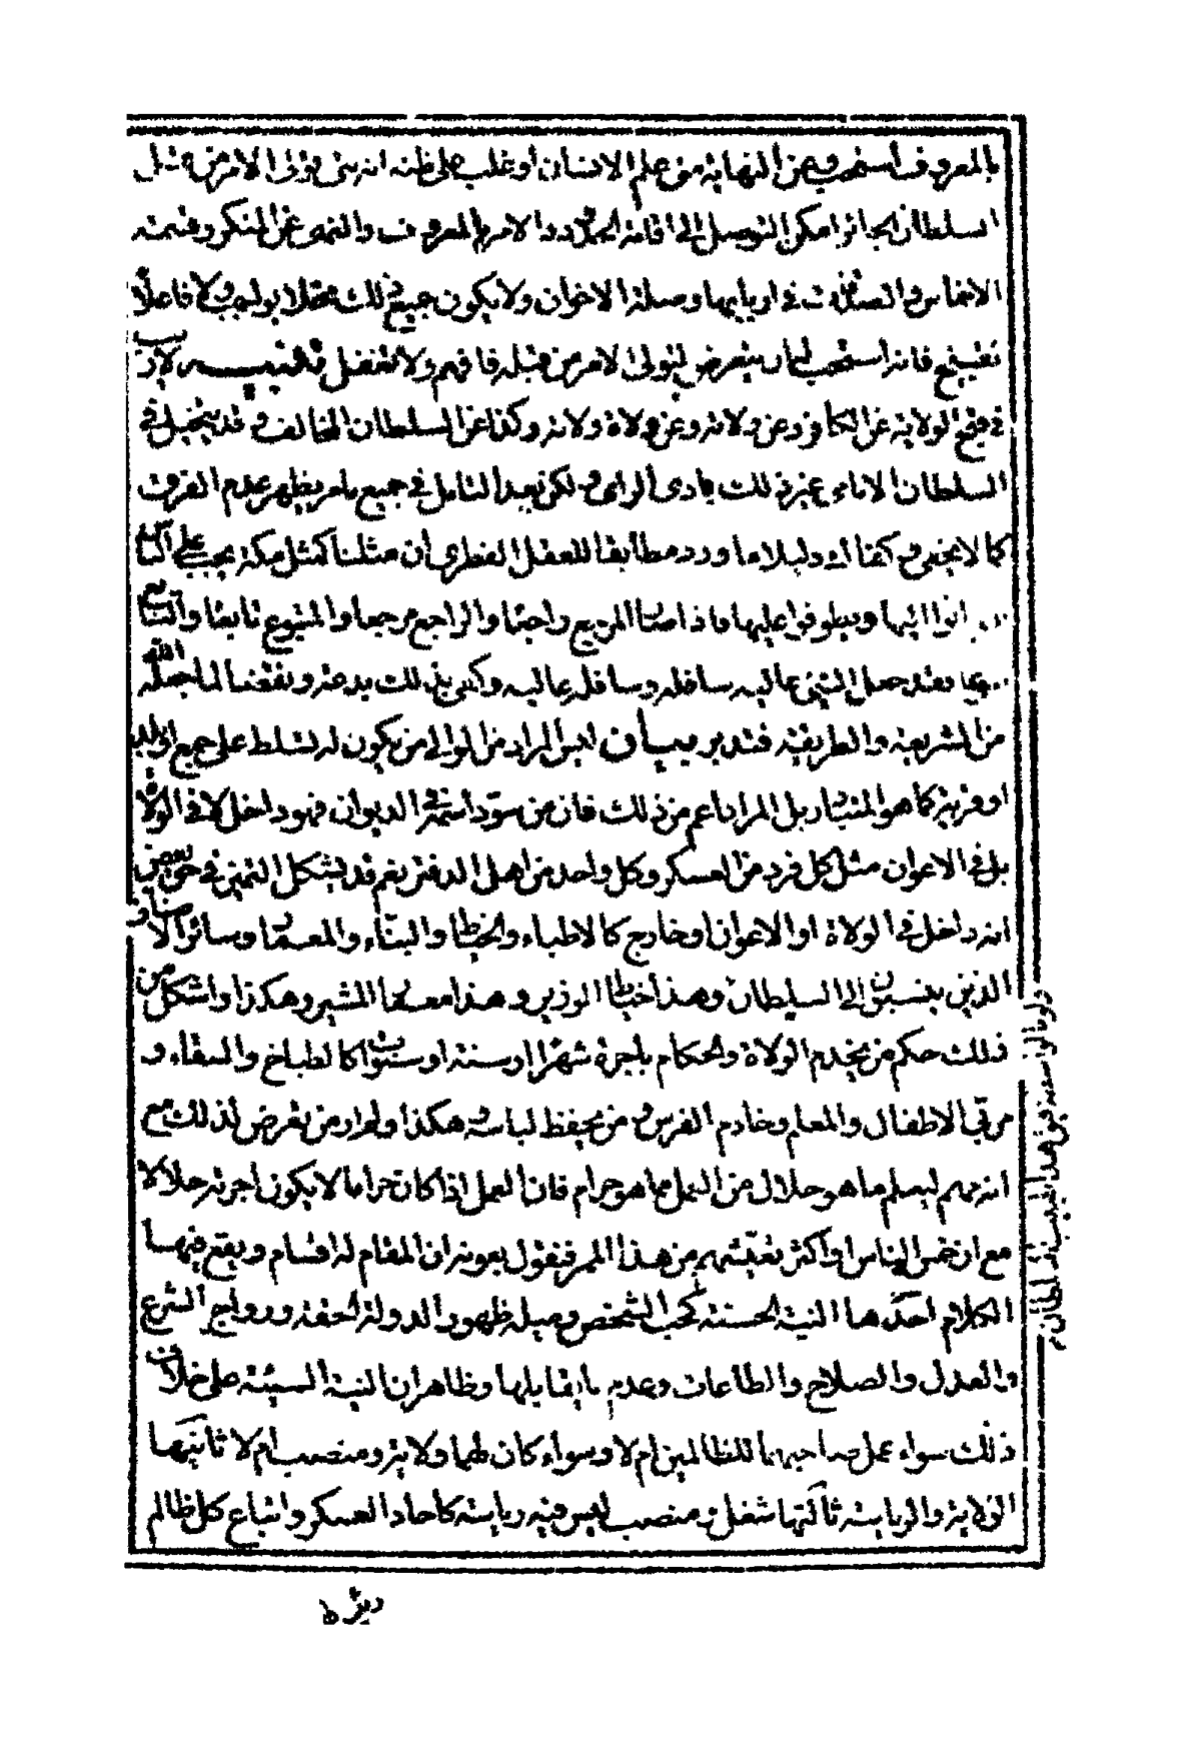 بالمعروف استحب وعن النهاية متى علم الانسان او غلب على ظنه انه متى تولى الامر من قبل
السلطان الجائر امكن التوصل الى اقامة الحدود والامر بالمعروف والنهى عن المنكر وقسمة
الاخماس والصدقات في اربابها وصلة الاخوان ولا يكون جميع ذلك مخلا بواجب ولا فاعلا
لقبيح فانه استحب له ان يتعرض لتولى الامر من قبله فافهم ولا تغفل تنبيه لا ريب
في قبح الولاية عن الكافر وعن ولاته وعن ولاة ولاته وكذا عن السلطان المخالف وقد يتخيل في
السلطان الامامي غير ذلك بادى الراى ولكن بعد التامل في جميع ما مر يظهر عدم الفرق
كما لا يخفى وكفاك دليلا ما ورد مطابقا للعقل الفطرى ان مثلنا كمثل مكة يجب على الناس
ان ياتوا اليها ويطوفوا عليها فاذا صار المرجع راجعا والراجع مرجعا والمتبوع تابعا والتابع
متبوعا فقد جعل الشيء عاليه سافله وسافله عاليه وكفى بذلك بدعة ونقضا لما جعله الله
من الشريعة والطريقة فتدبر بيان ليس المراد من الوالي من يكون له تسلط على جميع
او قرية كما هو المتبادر بل المراد اعم من ذلك فان من سود اسمه في الديوان فهو داخل لا في الولاة
بل في الاعوان مثل كل فرد من العسكر وكل واحد من اهل الدفتر نعم قد يشكل التميز في حق بعض
انه داخل في الولاة او الاعوان او خارج كالاطباء والخياط والبناء والمعمار وسائر الاصناف
الذين ينسبون الى السلطان وهذا خياط الوزير وهذا معمار المشير وهكذا واشكل من
ذلك حكم من يخدم الولاة والحكام باجرة شهرا او سنة او سنوات كالطباخ والسقاء و
مربي الاطفال والمعلم وخادم الفرس ومن يحفظ لباسه وهكذا ولم ار من تعرض لذلك مع
انه مهم ليعلم ما هو حلال من العمل مما هو حرام فان العمل اذا كان حراما لا يكون اجرته حلالا
مع ان خمس الناس او اكثر تعيشهم من هذا الممر فنقول بعونه ان المقام له اقسام ويقع فيها
الكلام احدها النية الحسنة كحب الشخص وميله ظهور الدولة الحقة ورواج الشرع
والعدل والصلاح والطاعات وعدم ما يقابلها وظاهر ان النية السيئة على خلاف
ذلك سواء عمل صاحبهما للظالمين ام لا وسواء كان لهما ولاية ومنصب ام لا ثانيها
الولاية والرياسة ثالثها شغل ومنصب ليس فيه رياسة كاحاد العسكر واتباع كل ظالم